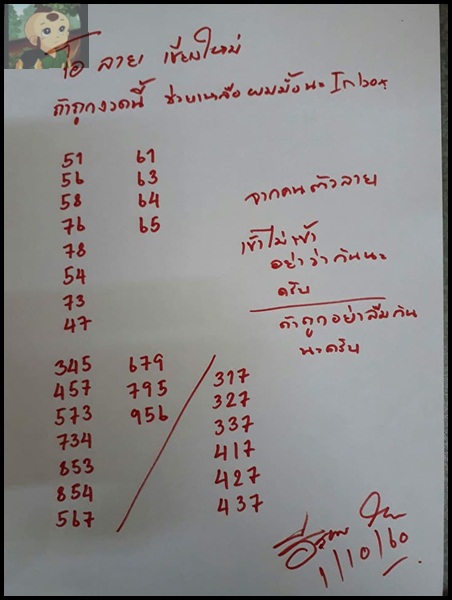 โอ ลาย เชียงใหม่
ถ้าถูกงวดนี้ ช่วยเหลือผมมั้งนะ Inbox
51 61
56 63
58 64
76 65
78
54
73
47
จากคนตัวลาย
เข้าไม่เข้า
อย่าว่ากันนะ
ครับ
ถ้าถูกอย่าลืมกัน
นะครับ
345 679
457 795
573 956
734
853
854
567
317
327
337
417
427
437
1/10/60